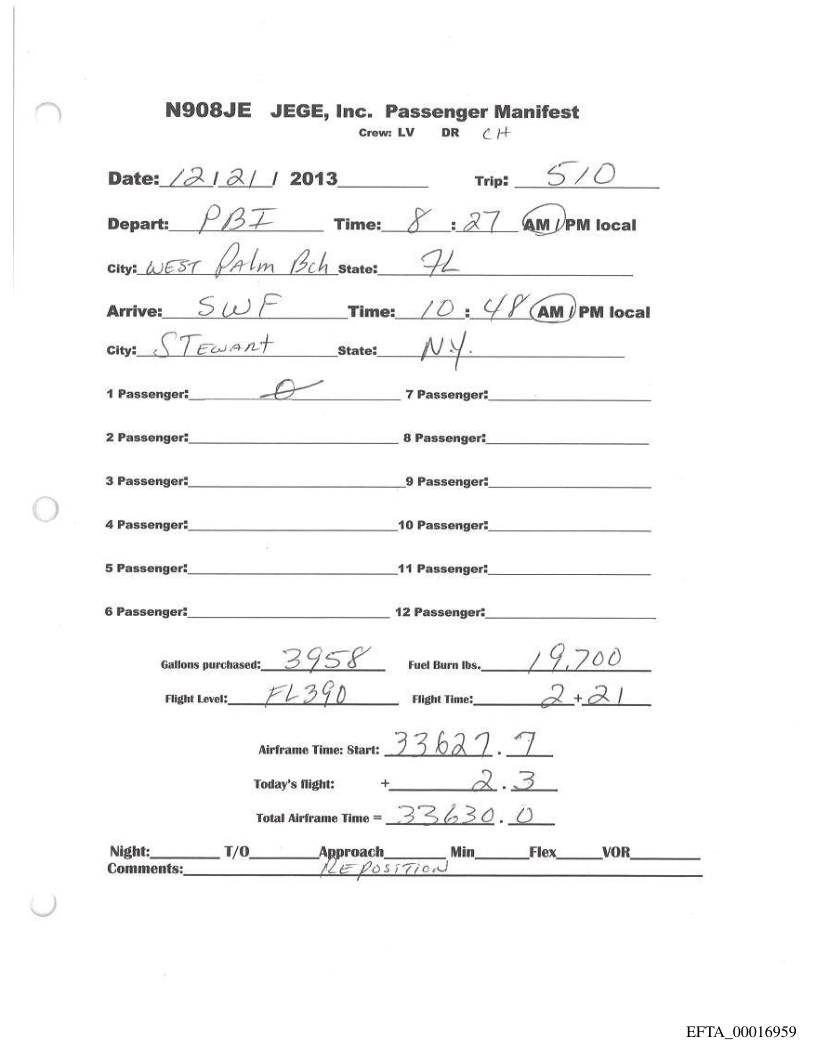 N908JE JEGE, Inc. Passenger Manifest
Crew: LV DR CH
Date: 12 / 21 / 2013 Trip: 510
Depart: PBI Time: 8 : 27 AM / PM local
City: WEST PAlm Bch State: FL
Arrive: SWF Time: 10 : 48 AM / PM local
City: STEWART State: N.Y.
1 Passenger: 0 7 Passenger:
2 Passenger: 8 Passenger:
3 Passenger: 9 Passenger:
4 Passenger: 10 Passenger:
5 Passenger: 11 Passenger:
6 Passenger: 12 Passenger:
Gallons purchased: 3958 Fuel Burn lbs. 19,700
Flight Level: FL390 Flight Time: 2 + 21
Airframe Time: Start: 33627 . 7
Today's flight: + 2 . 3
Total Airframe Time = 33630 . 0
Night: T/O Approach Min Flex VOR
Comments: REPOSITION
EFTA_00016959